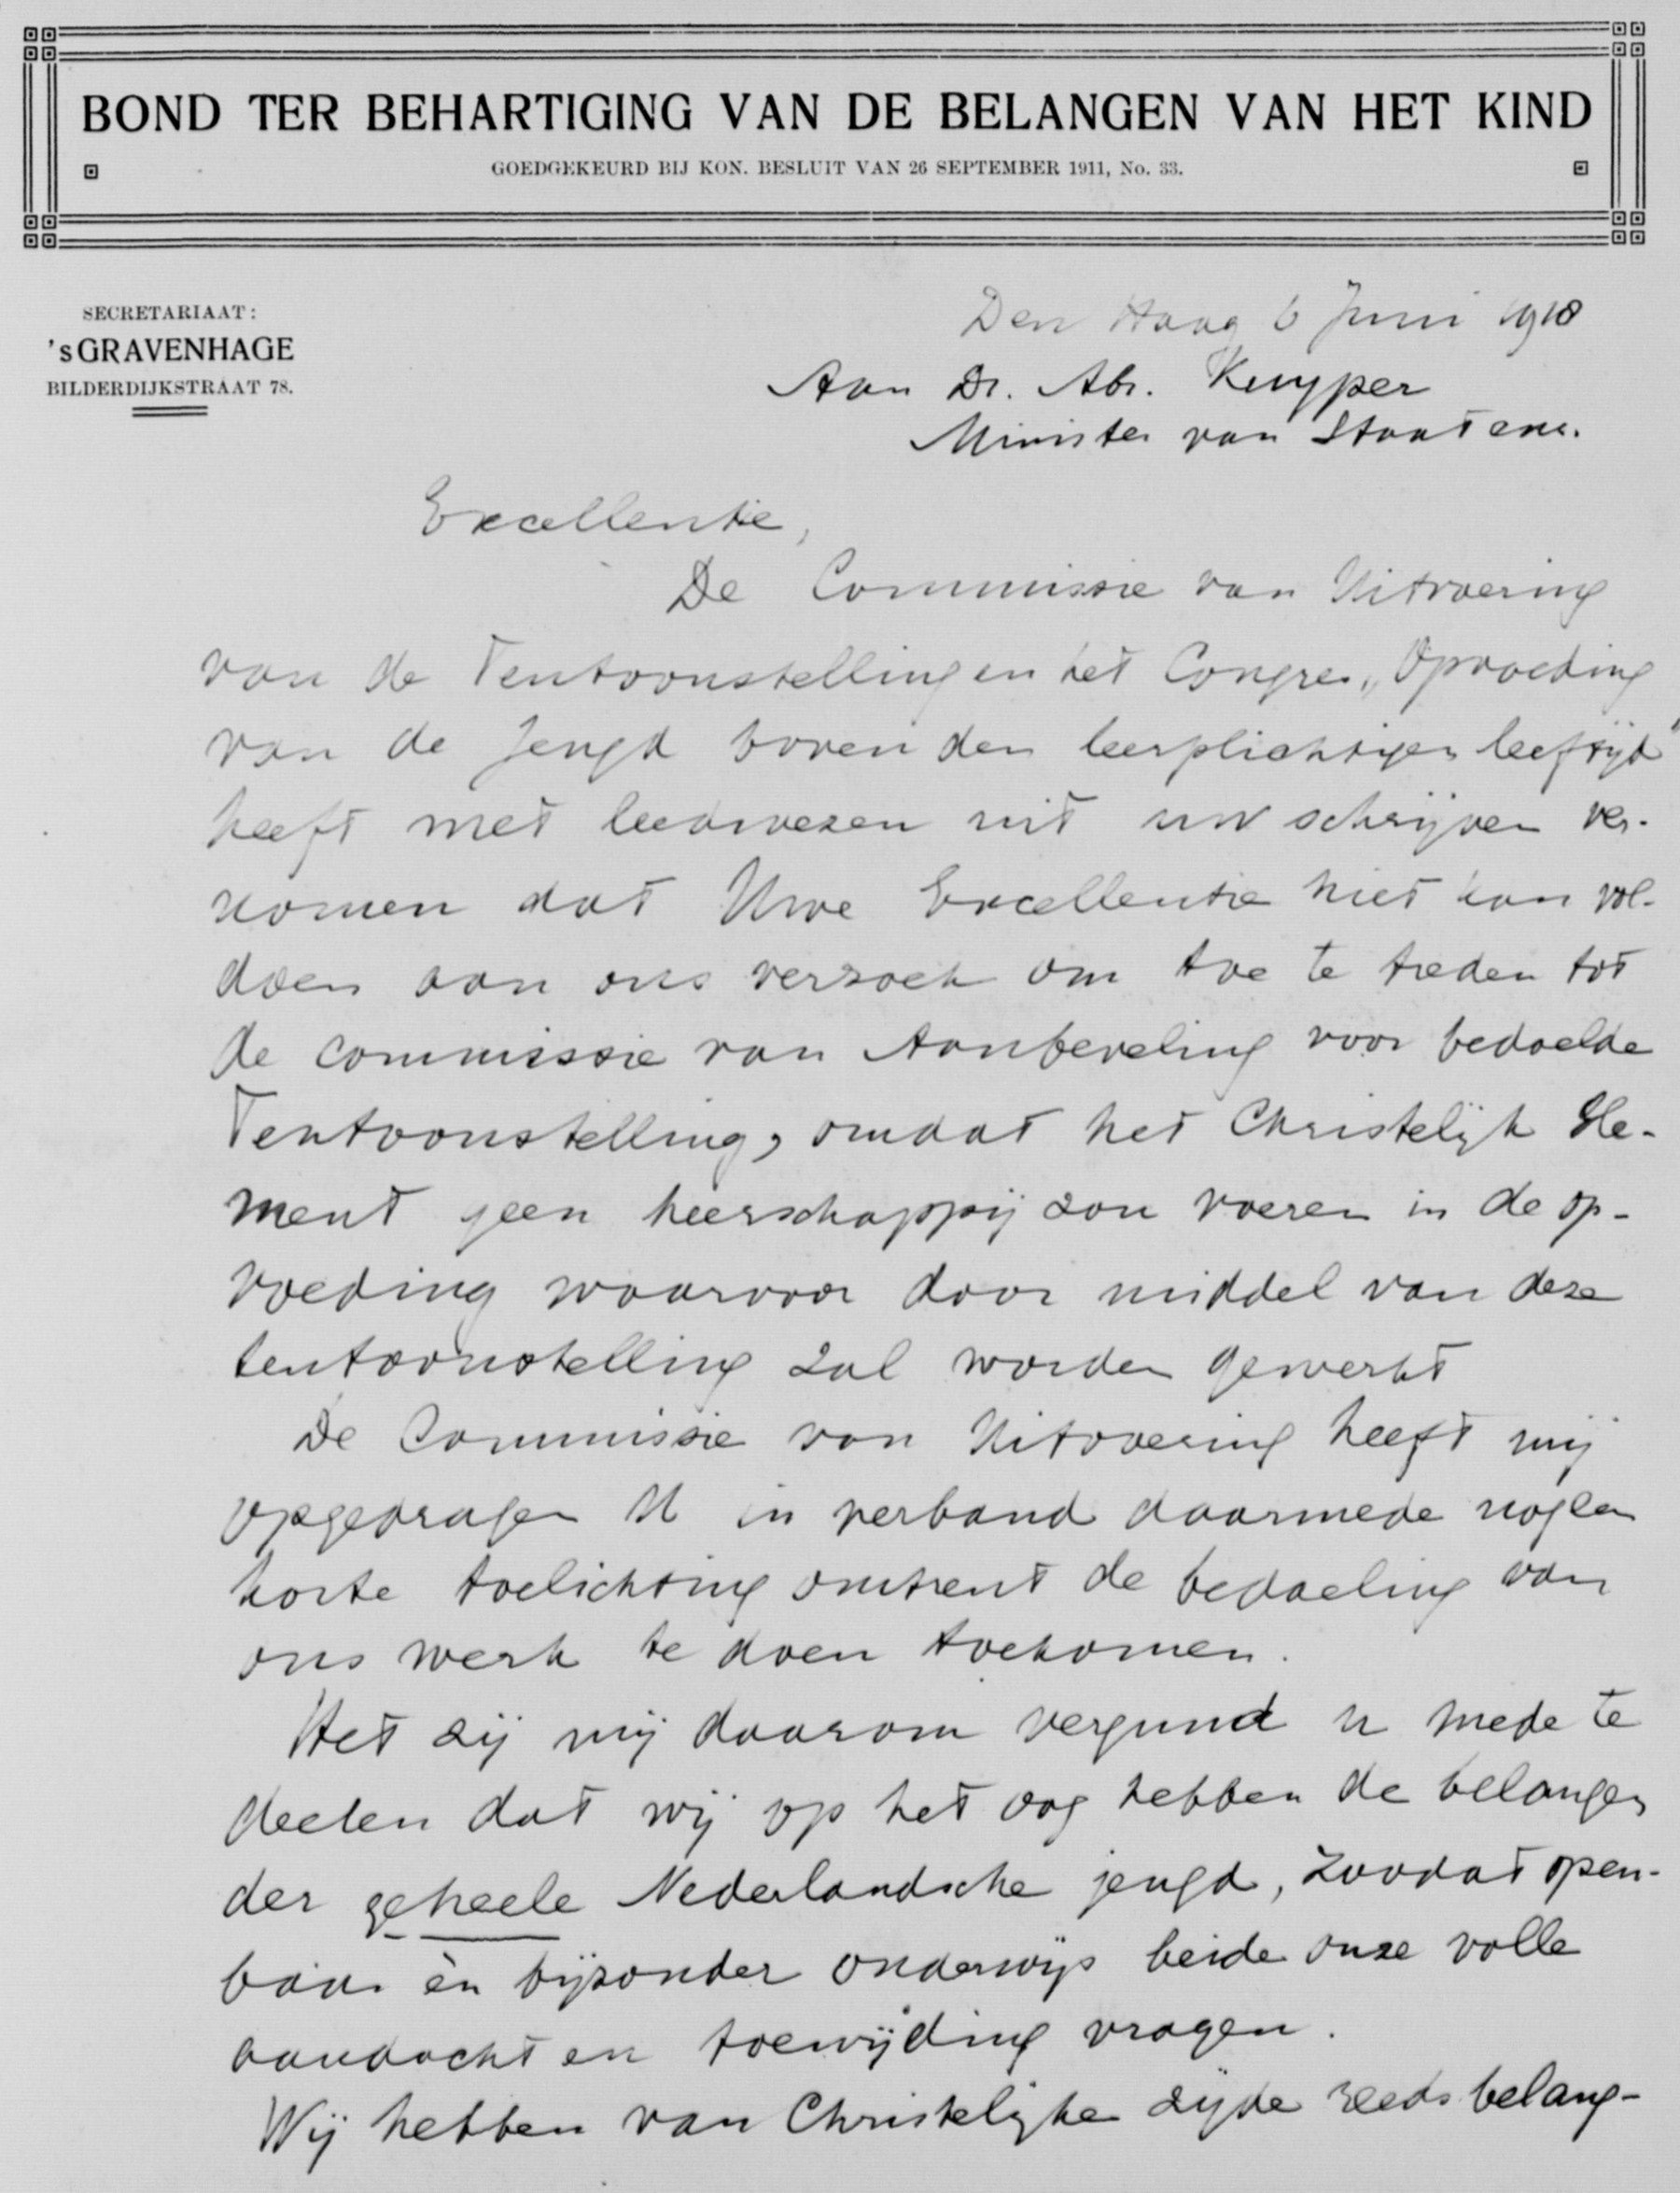 BOND TER BEHARTIGING VAN DE BELANGEN VAN HET KIND
GOEDGEKEURD BIJ KON. BESLUIT VAN 26 SEPTEMBER 1911, No. 33.
SECRETARIAAT:
'sGRAVENHAGE
BILDERDIJKSTRAAT 78.
Den Haag 6 Juni 1918
Aan Dr. Abr. Kuyper
Minister van Staat enz.
Excellentie,
De Commissie van Uitvoering
van de Tentoonstelling en het Congres „Opvoeding
van de Jeugd boven den leerplichtigen leeftijd"
heeft met leedwezen uit uw schrijven ver-
nomen dat Uwe Excellentie niet kan vol-
doen aan ons verzoek om toe te treden tot
de commissie van Aanbeveling voor bedoelde
Tentoonstelling, omdat het Christelijk Ele-
ment geen heerschappij zou voeren in de op-
voeding waarvoor door middel van deze
tentoonstelling zal worden gewerkt
De Commissie van Uitvoering heeft mij
opgedragen U in verband daarmede nog een
korte toelichting omtrent de bedoeling van
ons werk te doen toekomen.
Het zij mij daarom vergund u mede te
deelen dat wij op het oog hebben de belangen
der geheele Nederlandsche jeugd, zoodat open-
baar èn bijzonder onderwijs beide onze volle
aandacht en toewijding vragen.
Wij hebben van Christelijke zijde reeds belang-